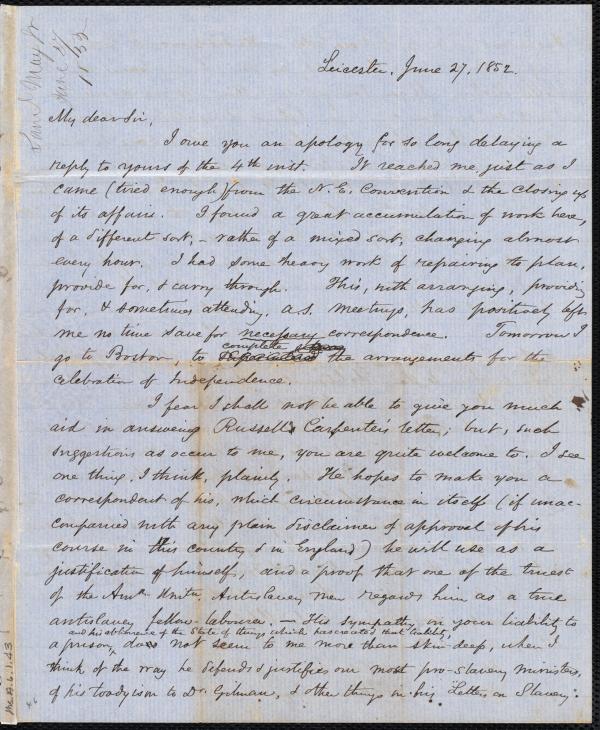 Sam'l May Jr
June 27/
1852
Leicester, June 27, 1852.
My dear Sir,
I owe you an apology for so long delaying a
reply to yours of the 4th inst. It reached me just as I
came (tired enough) from the N. E. Convention & the closing up
of its affairs. I found a great accumulation of work here,
of a different sort, – rather of a mixed sort, changing almost
every hour. I had some heavy work of repairing to plan,
provide for, & carry through. This, with arranging, providing
for, & sometimes attending, a. s. meetings, has positively left
me no time save for necessary correspondence. Tomorrow I
complete
go to Boston, to the arrangements for the
celebration of Independence.
I fear I shall not be able to give you much
aid in answering Russell Carpenter's letter; but, such
suggestions as occur to me, you are quite welcome to. I see
one thing, I think, plainly. He hopes to make you a
correspondent of his, which circumstance in itself (if unac-
companied with any plain disclaimer of approval of his
course in this country & in England) he will use as a
justification of himself, and a proof that one of the truest
of the Amn. Unitn. Antislavery men regards him as a true
antislavery fellow-labourer. – His sympathy in your liability to
and his abhorrence of the State of things which has created that liability,
a prison, does not seem to me more than skin-deep, when I
think of the way he defends & justifies our most pro-slavery ministers,
of his toadyism to Dr. Gilman, & other things in his Letters on Slavery.
Ms.A.6.1.43